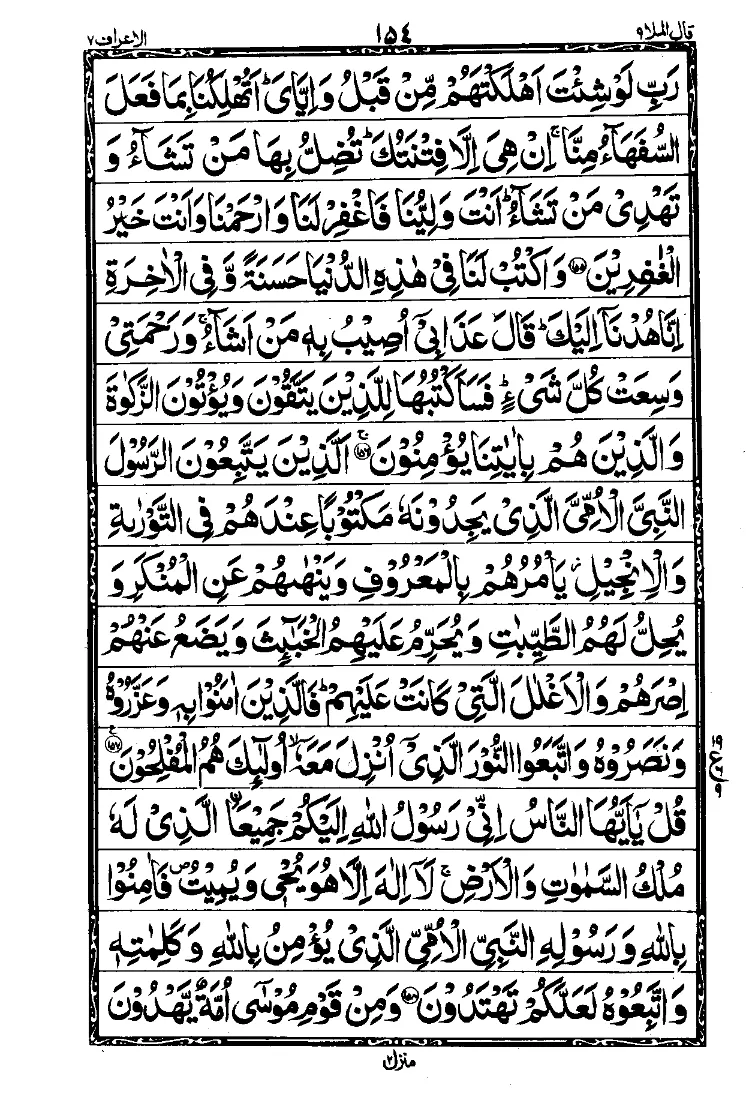 قال الملا ٩ ١٥٤ الاعراف ٧
رَبِّ لَوْ شِئْتَ اَهْلَكْتَهُمْ مِّنْ قَبْلُ وَ اِيَّايَ ؕ اَتُهْلِكُنَا بِمَا فَعَلَ
السُّفَهَآءُ مِنَّا ۚ اِنْ هِيَ اِلَّا فِتْنَتُكَ ؕ تُضِلُّ بِهَا مَنْ تَشَآءُ وَ
تَهْدِيْ مَنْ تَشَآءُ ؕ اَنْتَ وَلِيُّنَا فَاغْفِرْ لَنَا وَ ارْحَمْنَا وَ اَنْتَ خَيْرُ
الْغٰفِرِيْنَ ﴿۱۵۵﴾ وَ اكْتُبْ لَنَا فِيْ هٰذِهِ الدُّنْيَا حَسَنَةً وَّ فِي الْاٰخِرَةِ
اِنَّا هُدْنَاۤ اِلَيْكَ ؕ قَالَ عَذَابِيْۤ اُصِيْبُ بِهٖ مَنْ اَشَآءُ ۚ وَ رَحْمَتِيْ
وَسِعَتْ كُلَّ شَيْءٍ ؕ فَسَاَكْتُبُهَا لِلَّذِيْنَ يَتَّقُوْنَ وَ يُؤْتُوْنَ الزَّكٰوةَ
وَ الَّذِيْنَ هُمْ بِاٰيٰتِنَا يُؤْمِنُوْنَ ﴿۱۵۶﴾ۚ اَلَّذِيْنَ يَتَّبِعُوْنَ الرَّسُوْلَ
النَّبِيَّ الْاُمِّيَّ الَّذِيْ يَجِدُوْنَهٗ مَكْتُوْبًا عِنْدَهُمْ فِي التَّوْرٰىةِ
وَ الْاِنْجِيْلِ ؗ يَاْمُرُهُمْ بِالْمَعْرُوْفِ وَ يَنْهٰىهُمْ عَنِ الْمُنْكَرِ وَ
يُحِلُّ لَهُمُ الطَّيِّبٰتِ وَ يُحَرِّمُ عَلَيْهِمُ الْخَبٰٓئِثَ وَ يَضَعُ عَنْهُمْ
اِصْرَهُمْ وَ الْاَغْلٰلَ الَّتِيْ كَانَتْ عَلَيْهِمْ ؕ فَالَّذِيْنَ اٰمَنُوْا بِهٖ وَ عَزَّرُوْهُ
وَ نَصَرُوْهُ وَ اتَّبَعُوا النُّوْرَ الَّذِيْۤ اُنْزِلَ مَعَهٗۤ ۙ اُولٰٓئِكَ هُمُ الْمُفْلِحُوْنَ ﴿۱۵۷﴾
قُلْ يٰۤاَيُّهَا النَّاسُ اِنِّيْ رَسُوْلُ اللّٰهِ اِلَيْكُمْ جَمِيْعَا ِ۟الَّذِيْ لَهٗ
مُلْكُ السَّمٰوٰتِ وَ الْاَرْضِ ۚ لَاۤ اِلٰهَ اِلَّا هُوَ يُحْيٖ وَ يُمِيْتُ ۪ فَاٰمِنُوْا
بِاللّٰهِ وَ رَسُوْلِهِ النَّبِيِّ الْاُمِّيِّ الَّذِيْ يُؤْمِنُ بِاللّٰهِ وَ كَلِمٰتِهٖ
وَ اتَّبِعُوْهُ لَعَلَّكُمْ تَهْتَدُوْنَ ﴿۱۵۸﴾ وَ مِنْ قَوْمِ مُوْسٰۤى اُمَّةٌ يَّهْدُوْنَ
منزل ٢